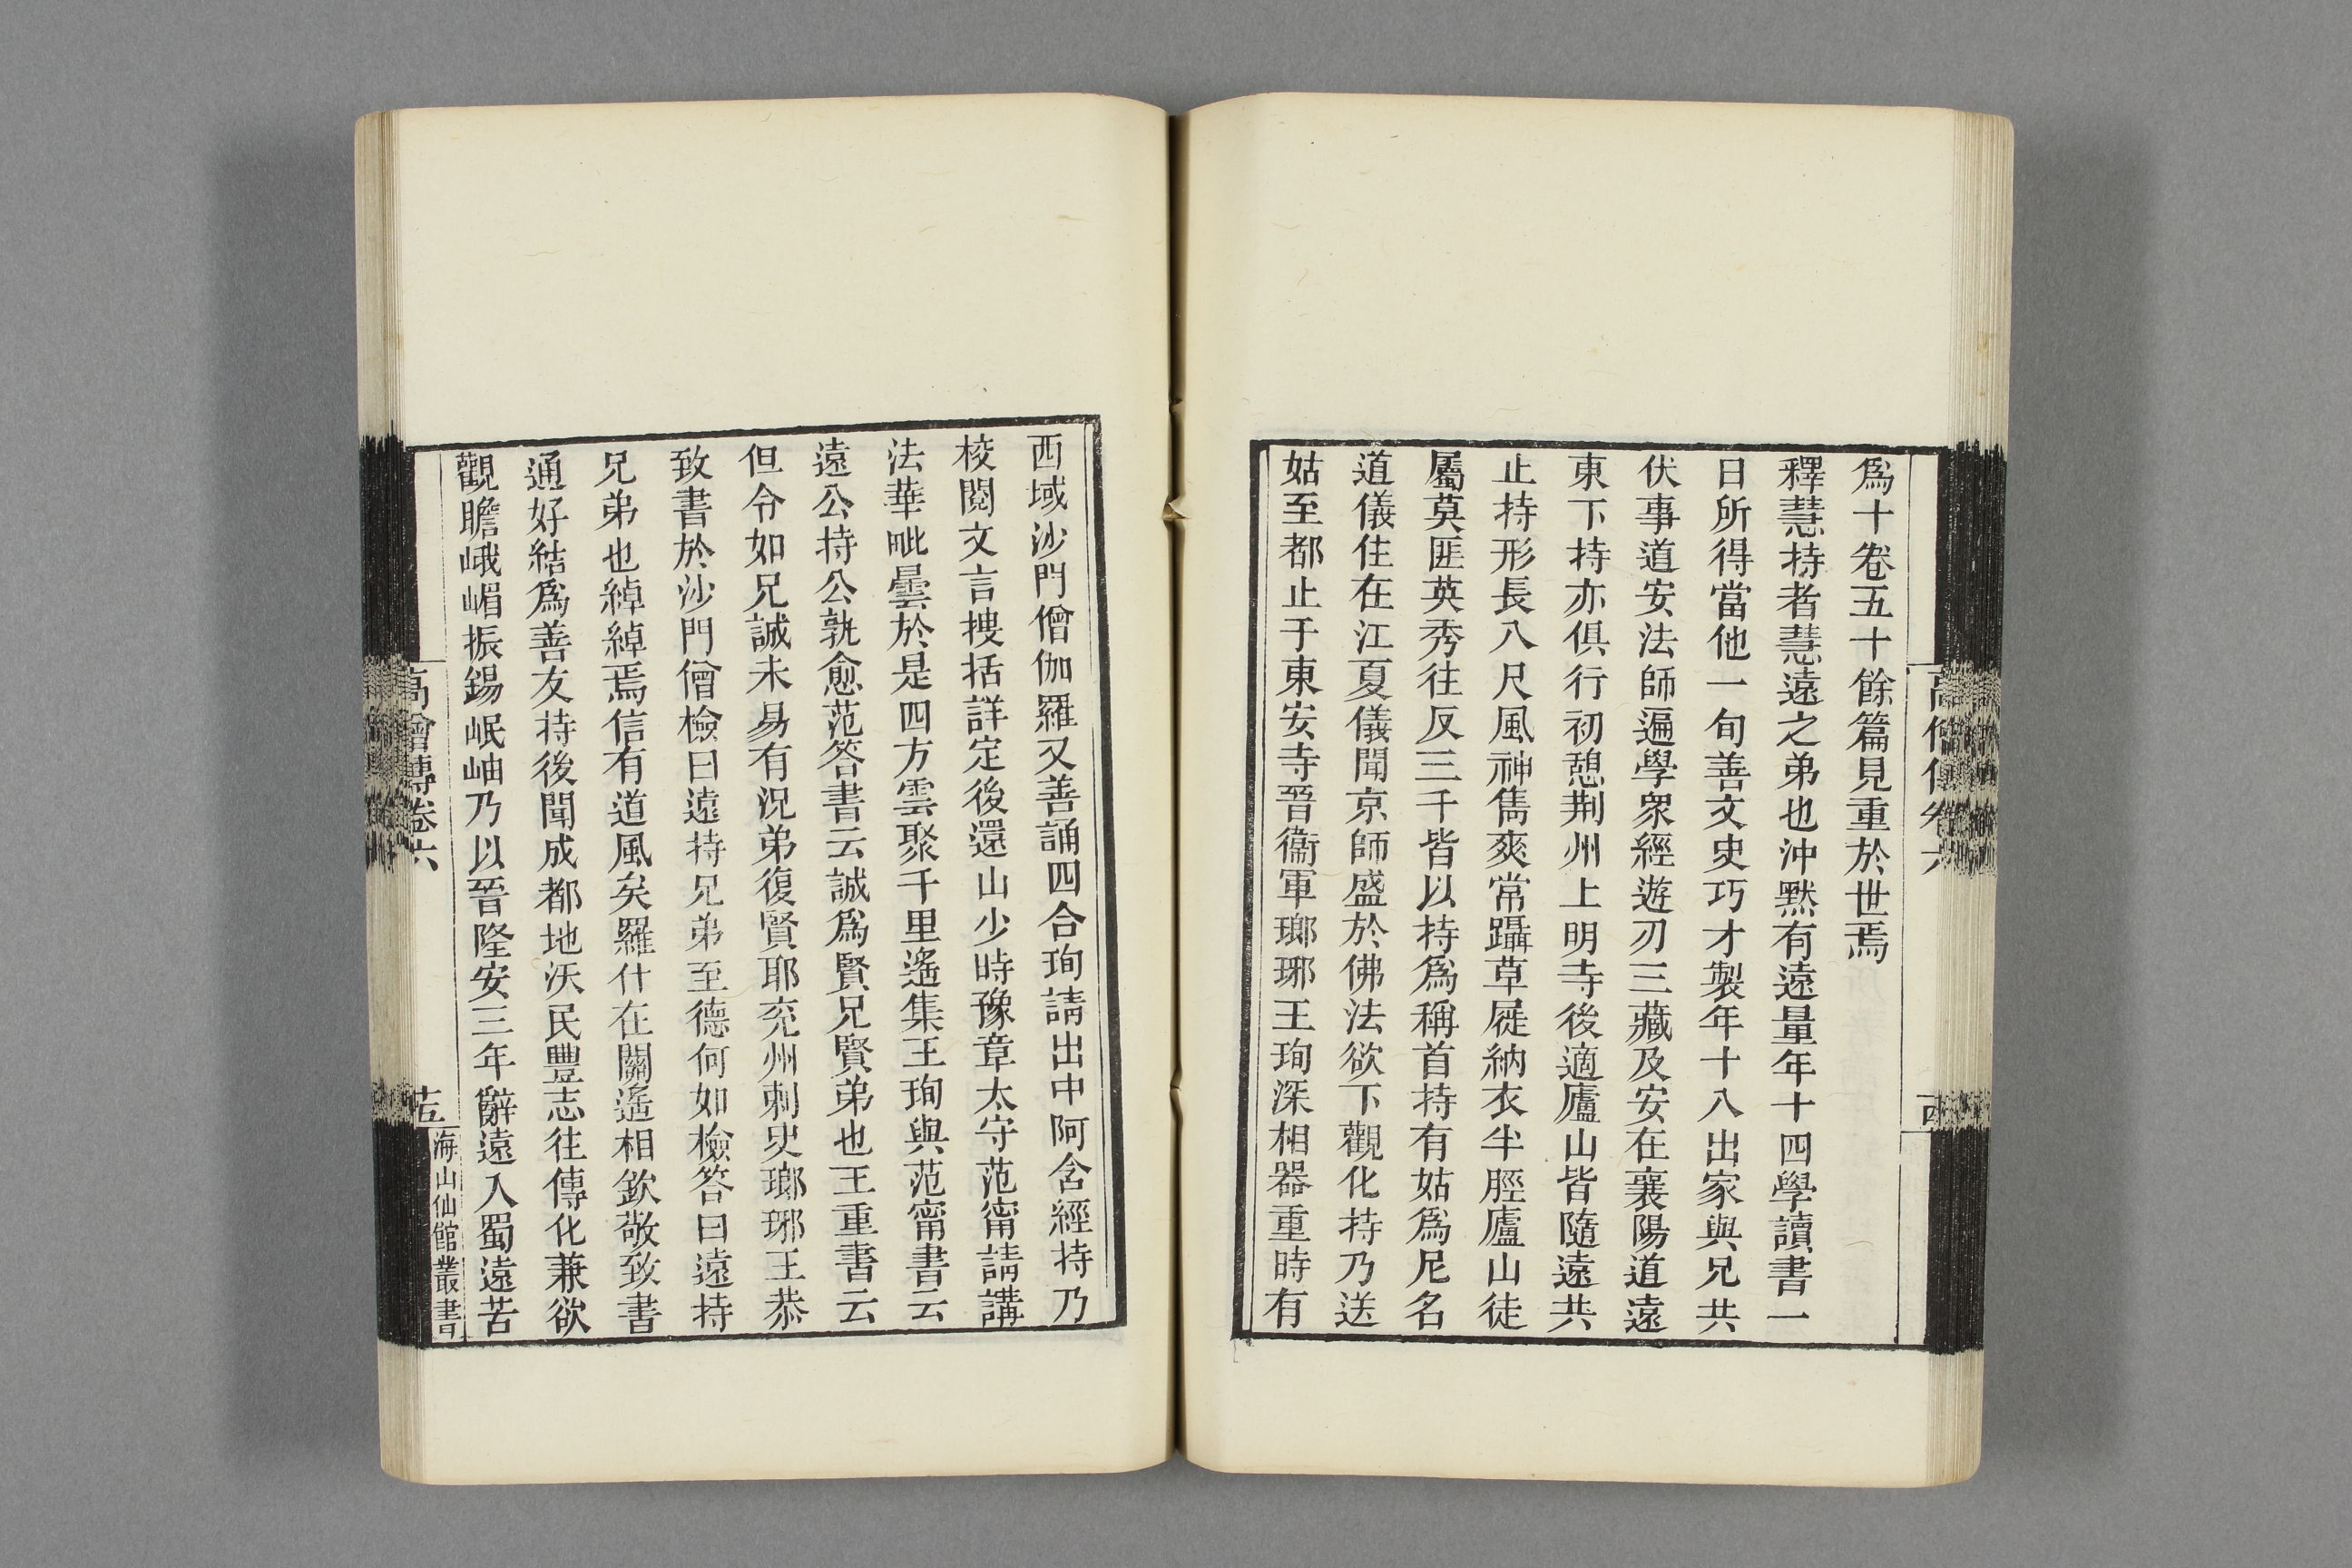 爲十卷五十餘篇見重於世焉
釋慧持者慧遠之弟也沖黙有遠量年十四學讀書一
日所得當他一旬善文史巧才製年十八出家與兄共
伏事道安法師遍學衆經遊刃三藏及安在襄陽道遠
東下持亦俱行初憩荆州上明寺後適廬山皆隨遠共
止持形長八尺風神雋爽常躡草屣納衣半脛廬山徒
屬莫匪英秀往反三千皆以持爲稱首持有姑爲尼名
道儀住在江夏儀聞京師盛於佛法欲下觀化持乃送
姑至都止于東安寺晉衞軍瑯琊王珣深相器重時有
西域沙門僧伽羅叉善誦四含珣請出中阿含經持乃
校閱文言搜括詳定後還山少時豫章太守范甯請講
法華毗曇於是四方雲聚千里遙集王珣與范甯書云
遠公持公孰愈范答書云誠爲賢兄賢弟也王重書云
但令如兄誠未易有況弟復賢耶兖州刺史瑯琊王恭
致書於沙門僧檢曰遠持兄弟至德何如檢答曰遠持
兄弟也綽綽焉信有道風矣羅什在關遙相欽敬致書
通好結爲善友持後聞成都地沃民豐志往傳化兼欲
觀瞻峨嵋振錫岷岫乃以晉隆安三年辭遠入蜀遠苦
高僧傳卷六
海山仙館叢書